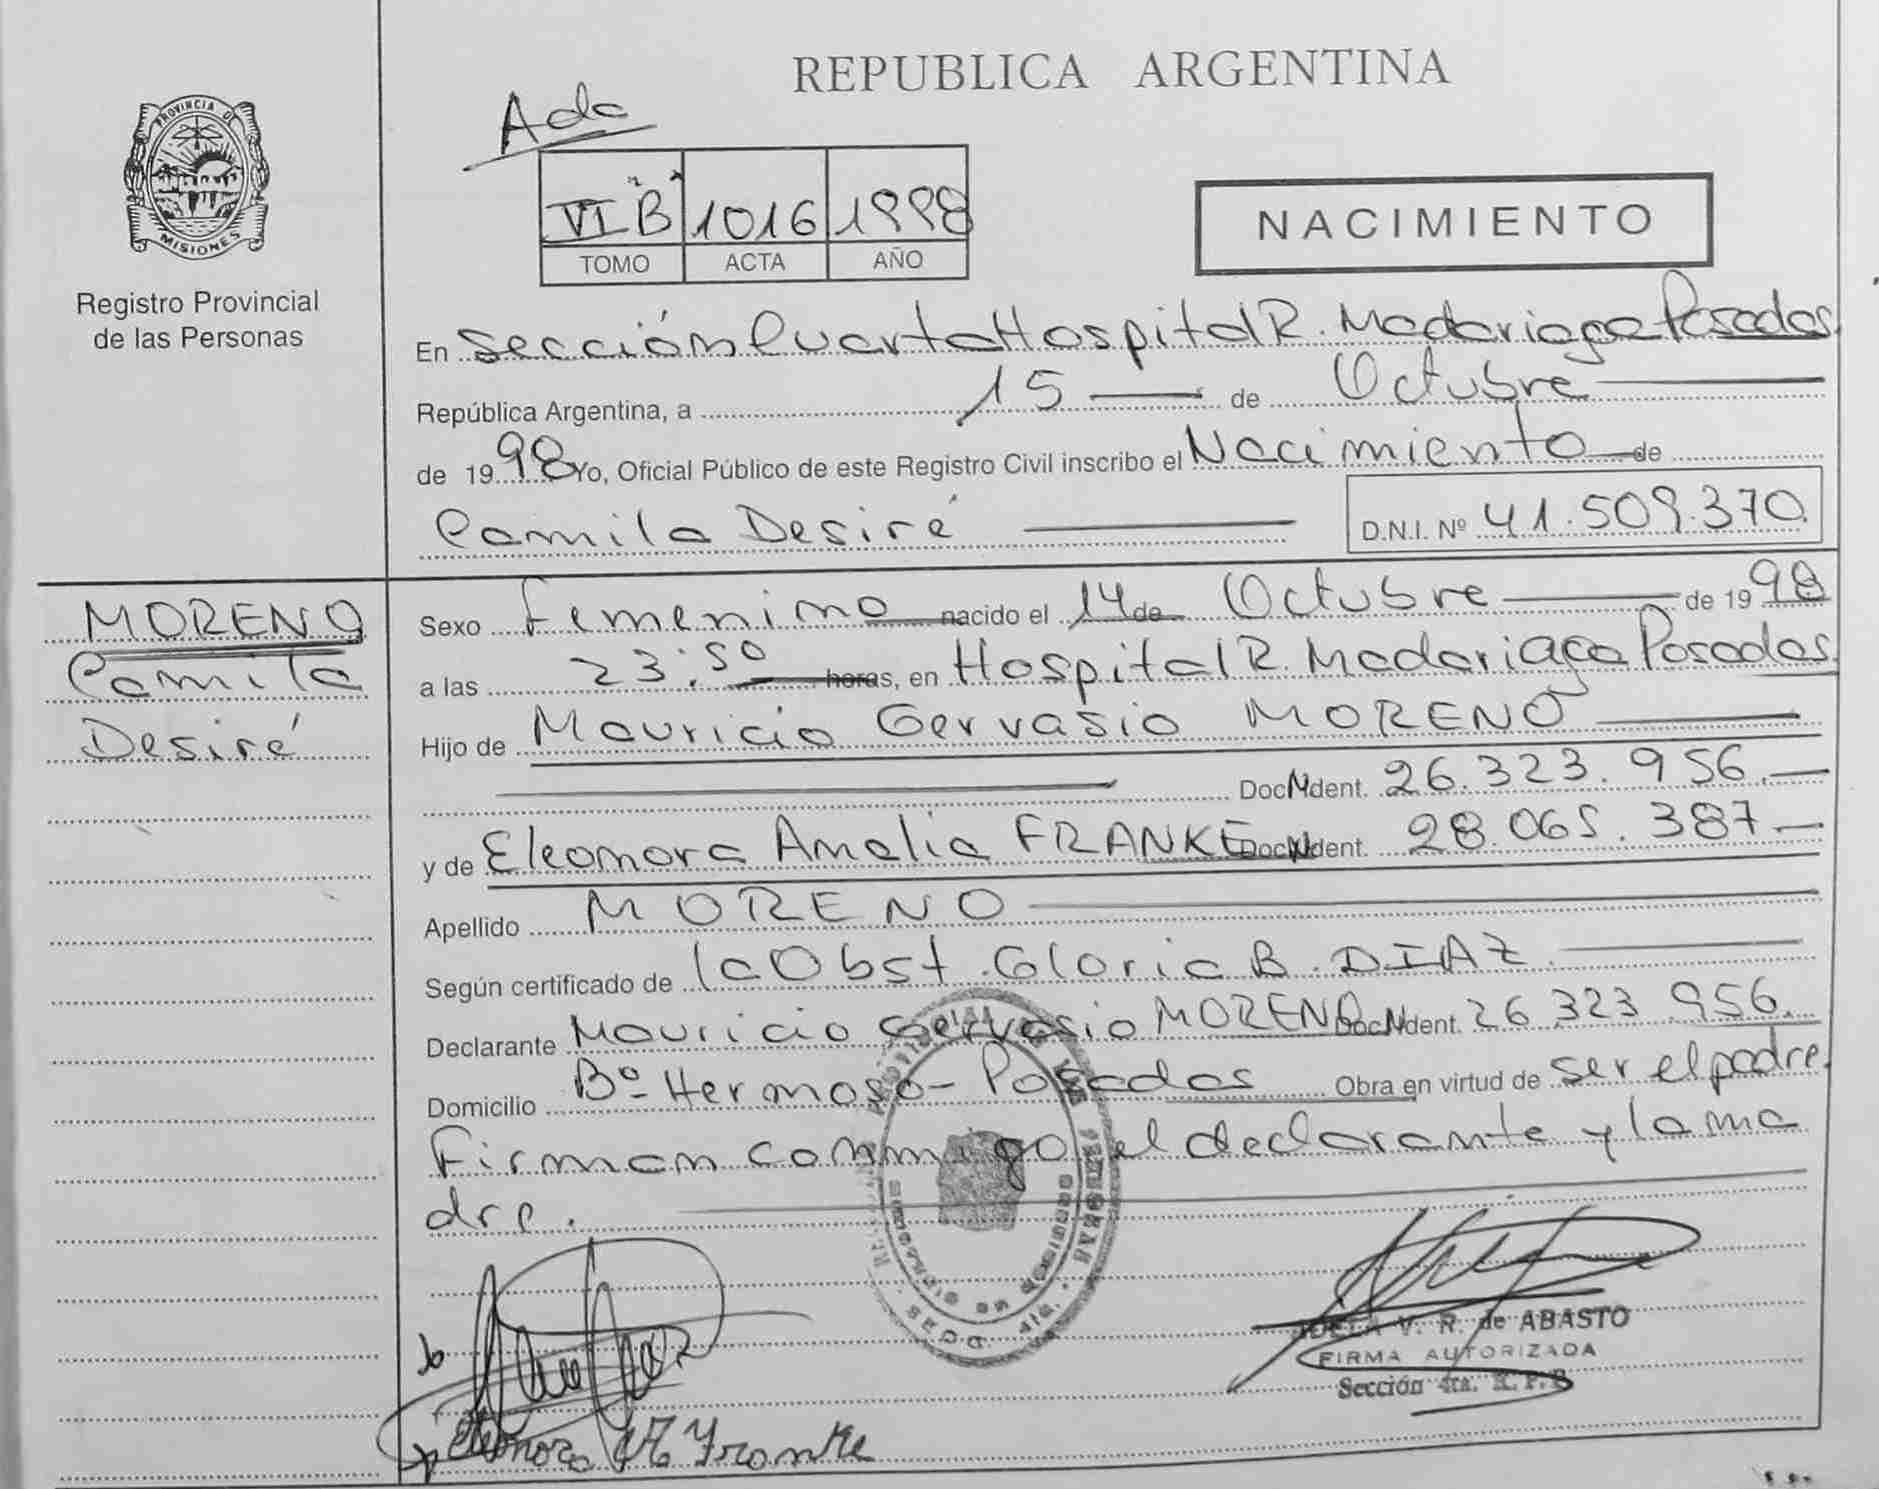 REPUBLICA ARGENTINA
PROVINCIA DE
MISIONES
Registro Provincial
de las Personas
VI "B" 1016 1998
TOMO ACTA AÑO
NACIMIENTO
En Sección Cuarta Hospital R. Madariaga Posadas
República Argentina, a 15 de Octubre
de 1998 Yo, Oficial Público de este Registro Civil inscribo el Nacimiento de
Camila Desiré D.N.I. Nº 41.509.370
MORENO
Camila
Desiré
Sexo Femenino nacido el 14 de Octubre de 1998
a las 23:50 horas, en Hospital R. Madariaga Posadas
Hijo de Mauricio Gervasio MORENO
Doc. Ident. 26.323.956.
y de Eleonora Amalia FRANKE Doc. Ident. 28.065.387
Apellido MORENO
Según certificado de la Obst. Gloria B. DIAZ
Declarante Mauricio Gervasio MORENO Doc. Ident. 26 323 956.
Domicilio Bº Hermoso - Posadas Obra en virtud de ser el padre.
Firman conmigo el declarante y la ma
dre.
V. R. de ABASTO
FIRMA AUTORIZADA
Sección 4ta. R. P. P.
Eleonora A Franke